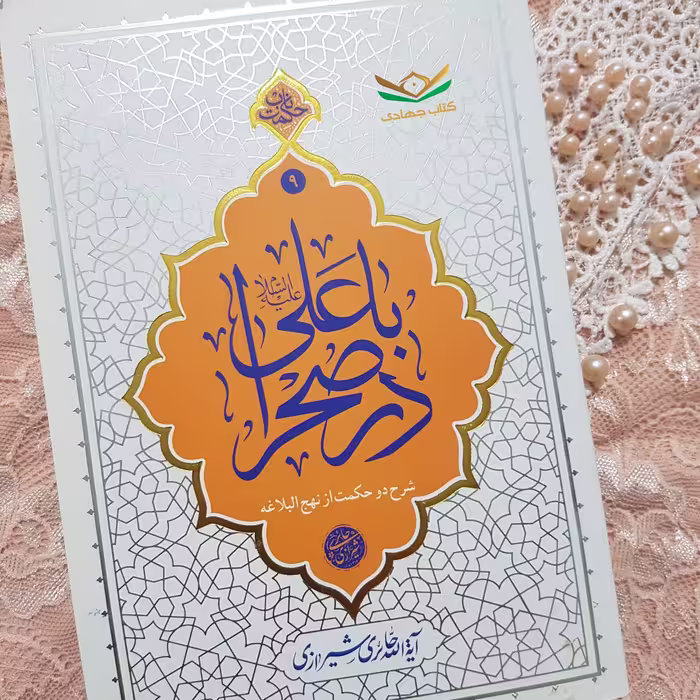 کتاب جهادی
۹
با علی علیه السلام
در صحرا
شرح دو حکمت از نهج البلاغه
حائری شیرازی
آیة الله حائری شیرازی